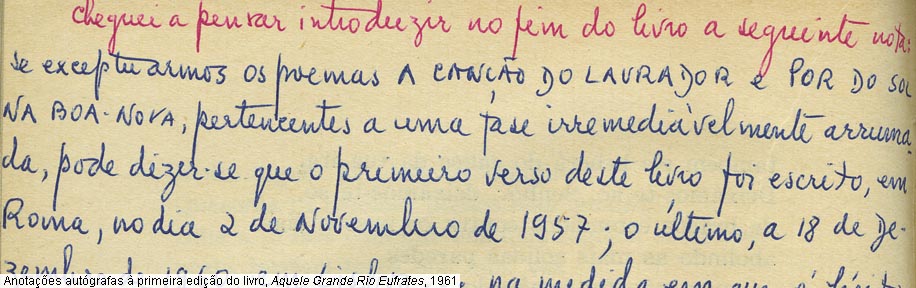 cheguei a pensar introduzir no fim do livro a seguinte nota:
se exceptuarmos os poemas A CANÇÃO DO LAVRADOR e POR DO SOL
NA BOA-NOVA, pertencentes a uma fase irremediàvelmente arruma-
da, pode dizer-se que o primeiro verso deste livro foi escrito, em
Roma, no dia 2 de Novembro de 1957; o último, a 18 de De-
zembro de na medida em que
Anotações autógrafas à primeira edição do livro, Aquele Grande Rio Eufrates, 1961